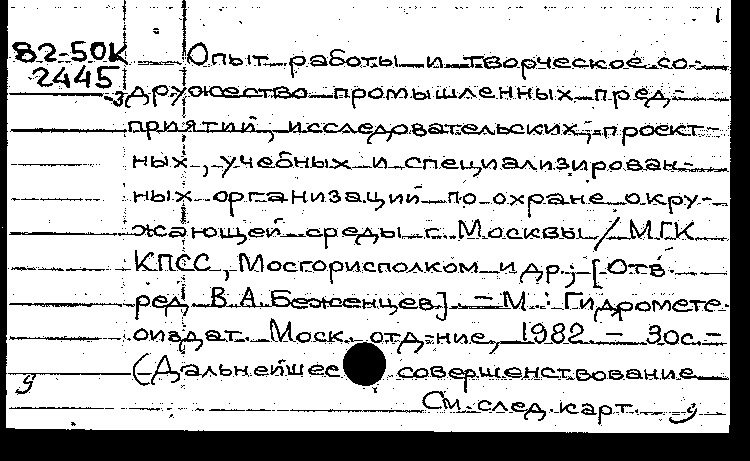 82-50К Опыт работы и творческое со-
2445
-3 дружество промышленных пред-
приятий, исследовательских, проект-
ных, учебных и специализирован-
ных организаций по охране окру-
жающей среды г. Москвы / МГК
КПСС, Мосгорисполком и др.; [Отв.
ред. В.А. Беженцев]. - М.: Гидромете-
оиздат. Моск. отд-ние, 1982. - 30с. -
(Дальнейшее совершенствование
См. след. карт.